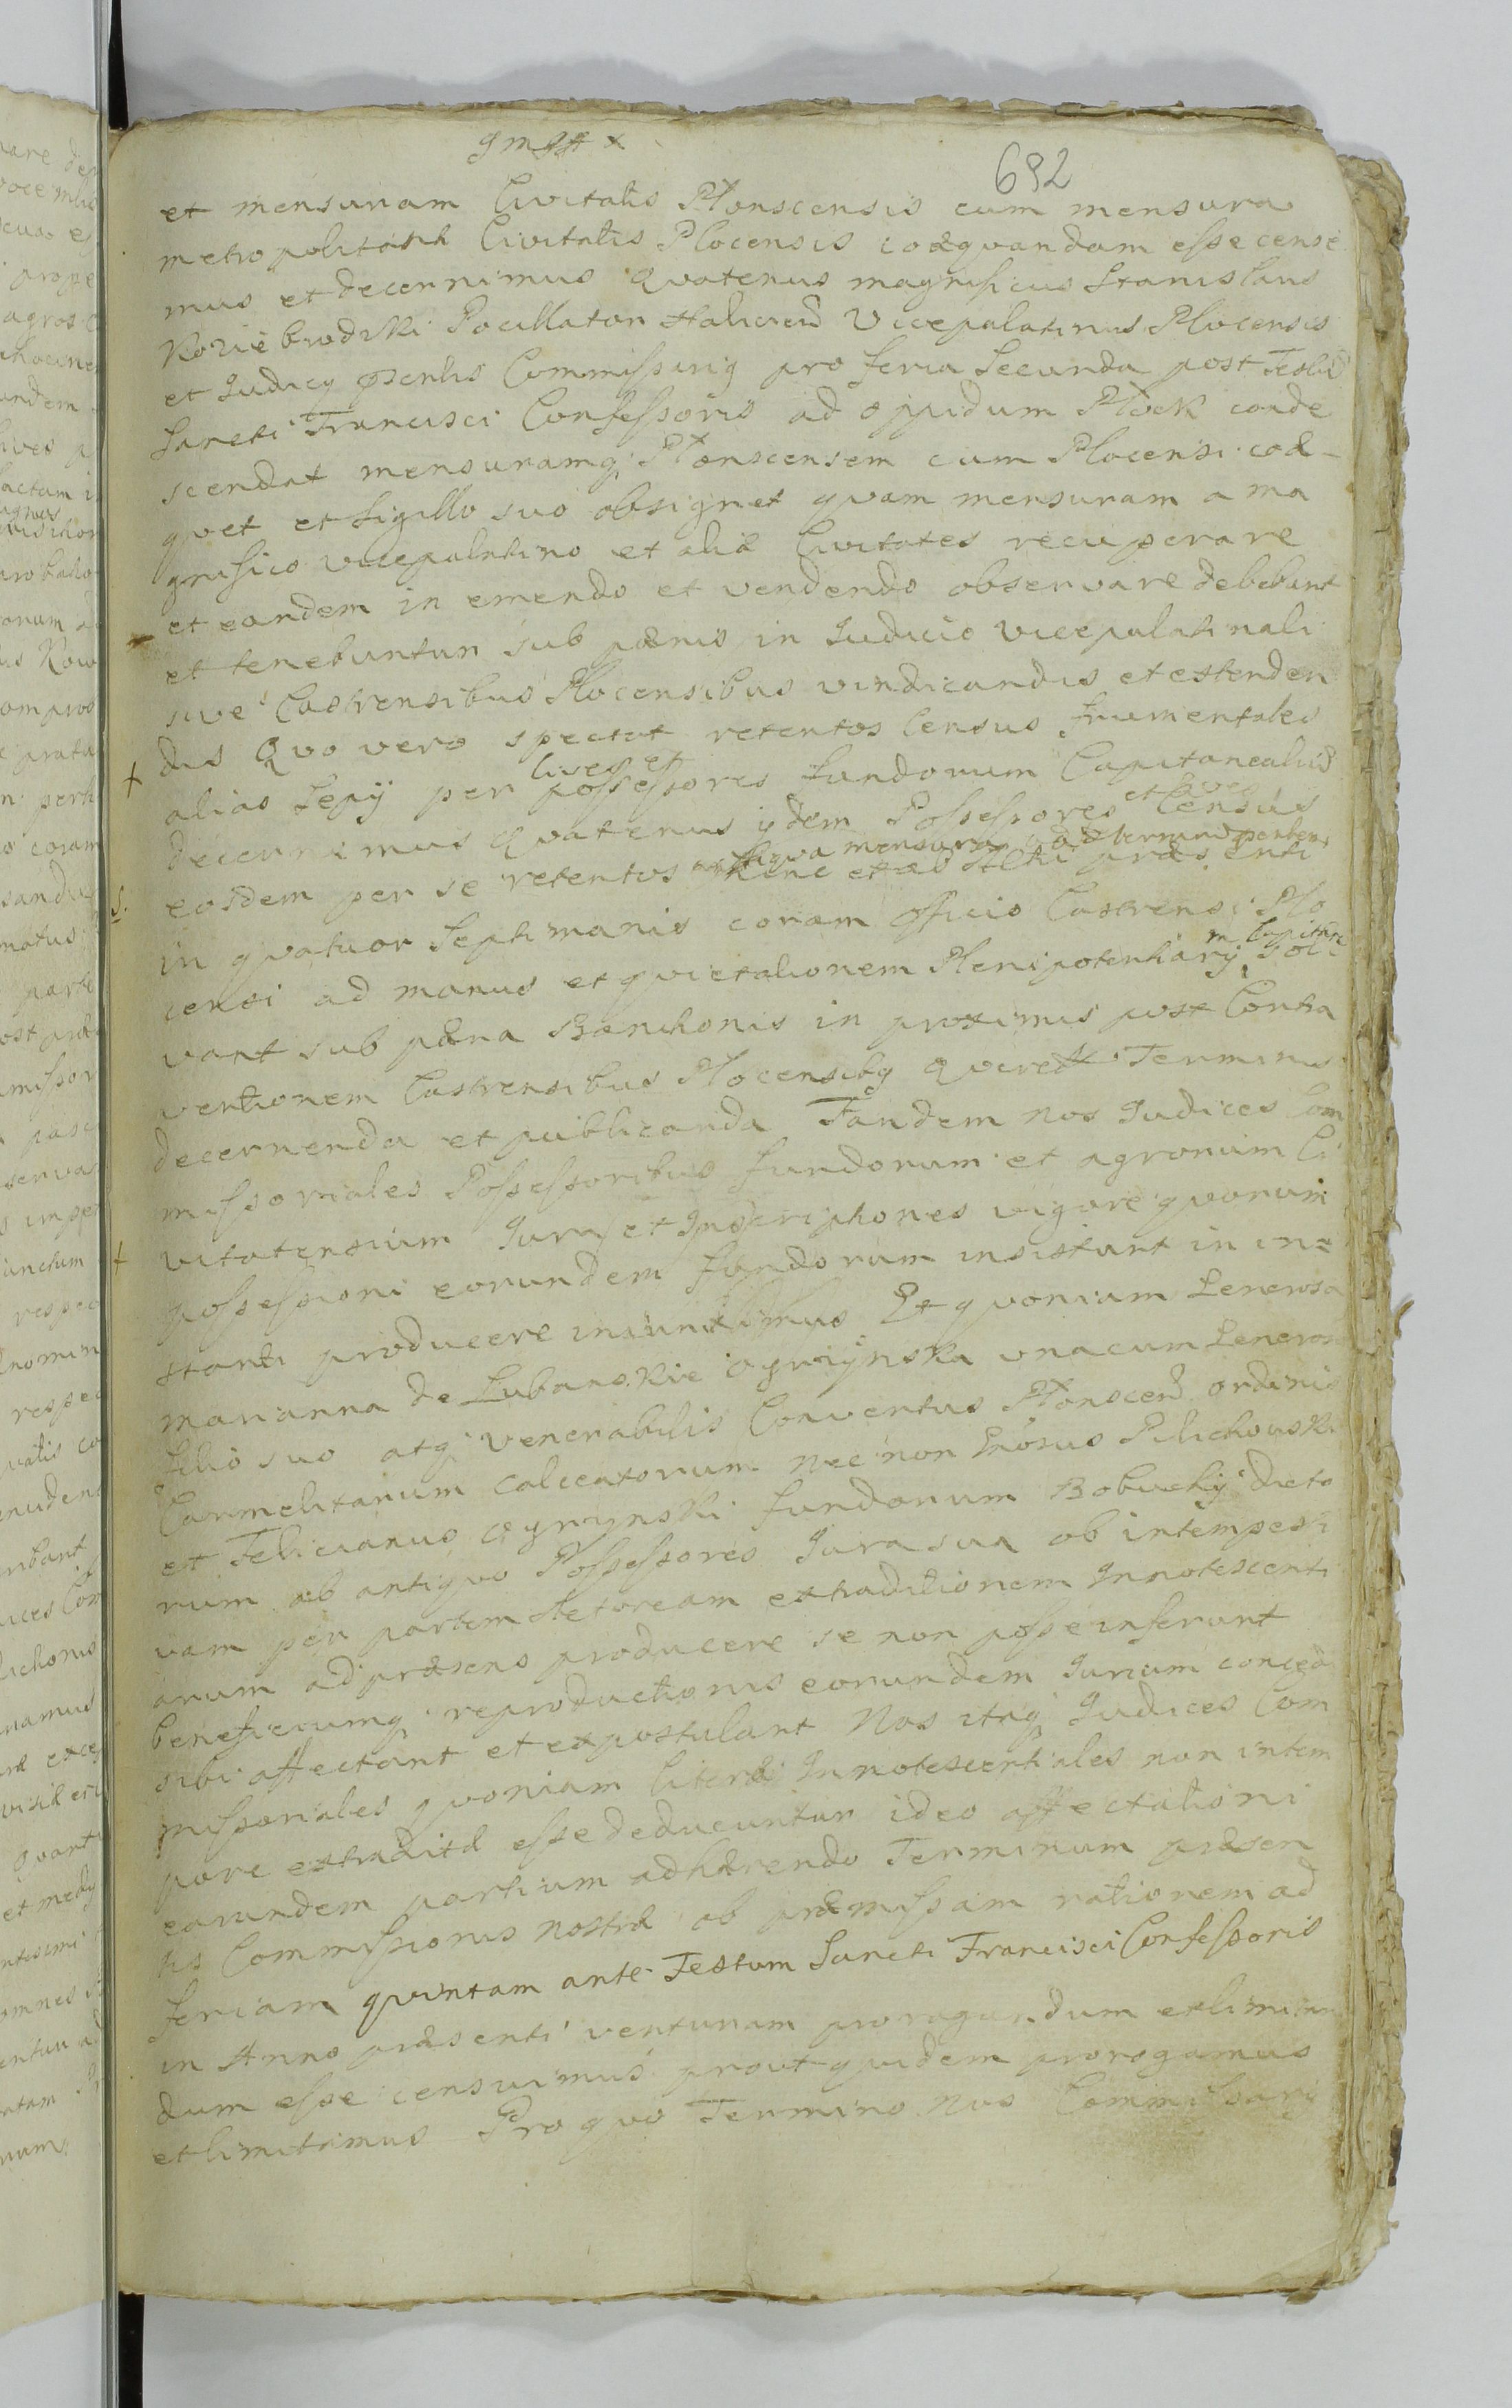 692
et mensuram Civitatis Płonscensis cum mensura
metropolitanæ Civitatis Plocensis coæquandam esse cense
mus et decernimus Quatenus magnificus Stanislaus
Koziebrodzki Pocillator Halicien Vicepalatinus Plocensis
et Judicy pñtis Commissarig pro feria Secunda post Festu
Sancti Francisci Confessoris ad oppidum Płock conde
scendat mensuramq Płonscensem cum Plocensi coæ-
quet et Sigillo suo obsignet quam mensuram a ma
gnifico vicepalatino et aliæ Civitates recuperare
et eandem in emendo et vendendo observare debebunt
et tenebuntur sub pænis in Judicio vicepalatinali
sive Castrensibus Plocensibus vindicandis et extenden
dis Quo vero spectat retentos Census frumentales
cives et
alias Sepÿ per possessores fundorum Capitanealiu
et Cives
decernimus Quatenus ÿdem Possessores Census
antiqua mensura
eosdem per se retentos hinc et ab Actu præsenti
in quatuor Septimanis coram officio Castrensi Plo
m Capitan
censi ad manus et quietationem Plenipotentiarÿ sol
vant sub pæna Banitionis in proximis post Contra
ventionem Castrensibus Plocensibq Querel Terminis
decernenda et publicanda Tandem nos Judices Com
missoriales Possessoribus fundorum et agrorum Ci
vitatensium Jura et Inscriptiones vigore quorum
possessioni eorundem fundorum insistunt in in=
stanti producere iniunximus Et quoniam Generosa
Marianna de Lubanskie Ogrzÿnska unacum Generoso
filio suo atq Venerabilis Conventus Płonscen ordinis
Carmelitarum calceatorum nec non Gnosus Pilichowski
et Felicianus Ogrzynski fundorum Bobuchÿ dicto
rum ab antiquo Possessores Jura sua ob intempesti
vam per partem Actoream extraditionem Innotescenti
arum ad præsens producere se non posse inferunt
beneficiumq reproductionis eorundem Jurium concedi
sibi affectant et expostulant Nos itaq Judices Com
missoriales quoniam Literæ Innotescentiales non intem
pore extraditæ esse deducuntur ideo affectationi
earundem partium adhærendo Terminum præsen
tis Commissionis nostræ ob præmissam rationem ad
feriam quintam ante Festum Sancti Francisci Confessoris
in Anno præsenti venturam prorogandum et limitan
dum esse censuimus prout quidem prorogamus
et limitamus Pro quo Termino Nos Commissarÿ